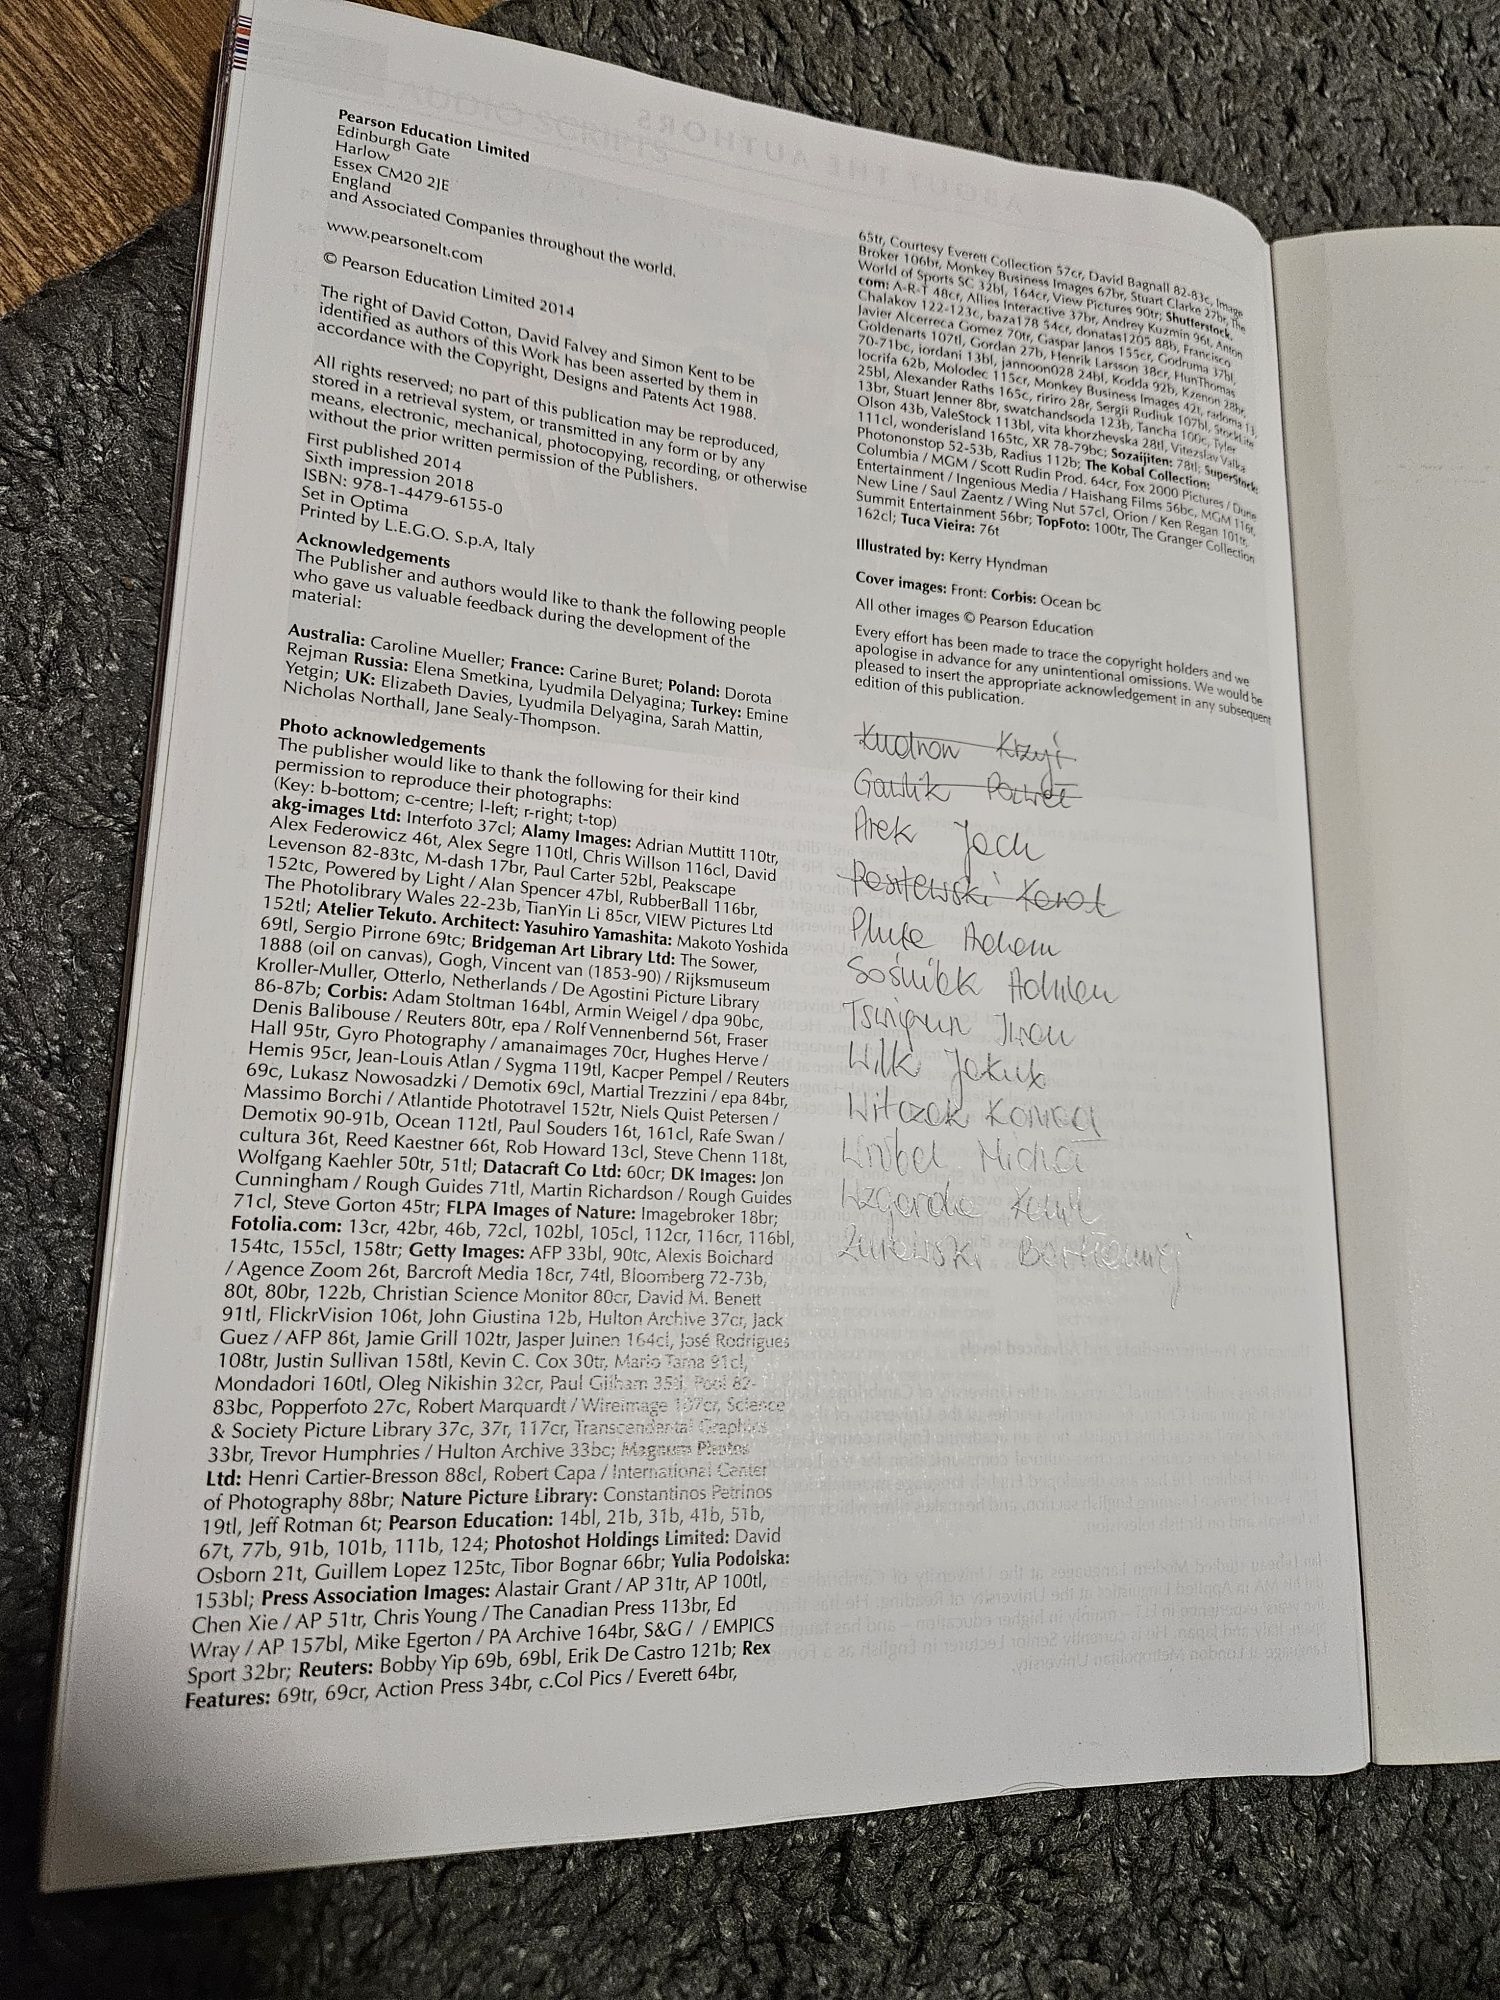 Pearson Education Limited
Edinburgh Gate
Harlow
Essex CM20 2JE
England
and Associated Companies throughout the world.
www.pearsonelt.com
© Pearson Education Limited 2014
The right of David Cotton, David Falvey and Simon Kent to be
identified as authors of this Work has been asserted by them in
accordance with the Copyright, Designs and Patents Act 1988.
All rights reserved; no part of this publication may be reproduced,
stored in a retrieval system, or transmitted in any form or by any
means, electronic, mechanical, photocopying, recording, or otherwise
without the prior written permission of the Publishers.
First published 2014
Sixth impression 2018
ISBN: 978-1-4479-6155-0
Set in Optima
Printed by L.E.G.O. S.p.A, Italy
Acknowledgements
The Publisher and authors would like to thank the following people
who gave us valuable feedback during the development of the
material:
Australia: Caroline Mueller; France: Carine Buret; Poland: Dorota
Rejman Russia: Elena Smetkina, Lyudmila Delyagina; Turkey: Emine
Yetgin; UK: Elizabeth Davies, Lyudmila Delyagina, Sarah Mattin,
Nicholas Northall, Jane Sealy-Thompson.
Photo acknowledgements
The publisher would like to thank the following for their kind
permission to reproduce their photographs:
(Key: b-bottom; c-centre; l-left; r-right; t-top)
akg-images Ltd: Interfoto 37cl; Alamy Images: Adrian Muttitt 110tr,
Alex Federowicz 46t, Alex Segre 110tl, Chris Willson 116cl, David
Levenson 82-83tc, M-dash 17br, Paul Carter 52bl, Peakscape
152tc, Powered by Light / Alan Spencer 47bl, RubberBall 116br,
The Photolibrary Wales 22-23b, TianYin Li 85cr, VIEW Pictures Ltd
152tl; Atelier Tekuto. Architect: Yasuhiro Yamashita: Makoto Yoshida
69tl, Sergio Pirrone 69tc; Bridgeman Art Library Ltd: The Sower,
1888 (oil on canvas), Gogh, Vincent van (1853-90) / Rijksmuseum
Kroller-Muller, Otterlo, Netherlands / De Agostini Picture Library
86-87b; Corbis: Adam Stoltman 164bl, Armin Weigel / dpa 90bc,
Denis Balibouse / Reuters 80tr, epa / Rolf Vennenbernd 56t, Fraser
Hall 95tr, Gyro Photography / amanaimages 70cr, Hughes Herve /
Hemis 95cr, Jean-Louis Atlan / Sygma 119tl, Kacper Pempel / Reuters
69c, Lukasz Nowosadzki / Demotix 69cl, Martial Trezzini / epa 84br,
Massimo Borchi / Atlantide Phototravel 152tr, Niels Quist Petersen /
Demotix 90-91b, Ocean 112tl, Paul Souders 16t, 161cl, Rafe Swan /
cultura 36t, Reed Kaestner 66t, Rob Howard 13cl, Steve Chenn 118t,
Wolfgang Kaehler 50tr, 51tl; Datacraft Co Ltd: 60cr; DK Images: Jon
Cunningham / Rough Guides 71tl, Martin Richardson / Rough Guides
71cl, Steve Gorton 45tr; FLPA Images of Nature: Imagebroker 18br;
Fotolia.com: 13cr, 42br, 46b, 72cl, 102bl, 105cl, 112cr, 116cr, 116bl,
154tc, 155cl, 158tr; Getty Images: AFP 33bl, 90tc, Alexis Boichard
/ Agence Zoom 26t, Barcroft Media 18cr, 74tl, Bloomberg 72-73b,
80t, 80br, 122b, Christian Science Monitor 80cr, David M. Benett
91tl, FlickrVision 106t, John Giustina 12b, Hulton Archive 37cr, Jack
Guez / AFP 86t, Jamie Grill 102tr, Jasper Juinen 164cl, José Rodrigues
108tr, Justin Sullivan 158tl, Kevin C. Cox 30tr, Mario Tama 91cl,
Mondadori 160tl, Oleg Nikishin 32cr, Paul Gilham 35tl, Pool 82-
83bc, Popperfoto 27c, Robert Marquardt / Wireimage 107cr, Science
& Society Picture Library 37c, 37r, 117cr, Transcendental Graphics
33br, Trevor Humphries / Hulton Archive 33bc; Magnum Photos
Ltd: Henri Cartier-Bresson 88cl, Robert Capa / International Center
of Photography 88br; Nature Picture Library: Constantinos Petrinos
19tl, Jeff Rotman 6t; Pearson Education: 14bl, 21b, 31b, 41b, 51b,
67t, 77b, 91b, 101b, 111b, 124; Photoshot Holdings Limited: David
Osborn 21t, Guillem Lopez 125tc, Tibor Bognar 66br; Yulia Podolska:
153bl; Press Association Images: Alastair Grant / AP 31tr, AP 100tl,
Chen Xie / AP 51tr, Chris Young / The Canadian Press 113br, Ed
Wray / AP 157bl, Mike Egerton / PA Archive 164br, S&G / / EMPICS
Sport 32br; Reuters: Bobby Yip 69b, 69bl, Erik De Castro 121b; Rex
Features: 69tr, 69cr, Action Press 34br, c.Col Pics / Everett 64br,
65tr, Courtesy Everett Collection 57cr, David Bagnall 82-83c, Image
Broker 106br, Monkey Business Images 67br, Stuart Clarke 27br, The
World of Sports SC 32bl, 164cr, View Pictures 90tr; Shutterstock.
com: A-R-T 48cr, Allies Interactive 37br, Andrey Kuzmin 96t, Anton
Chalakov 122-123c, baza178 54cr, donatas1205 88b, Francisco
Javier Alcerreca Gomez 70tr, Gaspar Janos 155cr, Godruma 37bl,
Goldenarts 107tl, Gordan 27b, Henrik Larsson 38cr, HunThomas
70-71bc, iordani 13bl, jannoon028 24bl, Kodda 92b, Kzenon 28br,
locrifa 62b, Molodec 115cr, Monkey Business Images 42t, radoma 13,
25bl, Alexander Raths 165c, ririro 28r, Sergii Rudiuk 107bl, StockLite
13br, Stuart Jenner 8br, swatchandsoda 123b, Tancha 100c, Tyler
Olson 43b, ValeStock 113bl, vita khorzhevska 28tl, Vitezslav Valka
111cl, wonderisland 165tc, XR 78-79bc; Sozaijiten: 78tl; SuperStock:
Photononstop 52-53b, Radius 112b; The Kobal Collection:
Columbia / MGM / Scott Rudin Prod. 64cr, Fox 2000 Pictures / Dune
Entertainment / Ingenious Media / Haishang Films 56bc, MGM 116t,
New Line / Saul Zaentz / Wing Nut 57cl, Orion / Ken Regan 101tr,
Summit Entertainment 56br; TopFoto: 100tr, The Granger Collection
162cl; Tuca Vieira: 76t
Illustrated by: Kerry Hyndman
Cover images: Front: Corbis: Ocean bc
All other images © Pearson Education
Every effort has been made to trace the copyright holders and we
apologise in advance for any unintentional omissions. We would be
pleased to insert the appropriate acknowledgement in any subsequent
edition of this publication.
Kudron
Gawlik Paweł
Arek Jach
Karol
Pluta Adam
Sośniak
Iwan
Wilk Jakub
Witczak Konrad
Wróbel Michał
Żurawski Bartłomiej